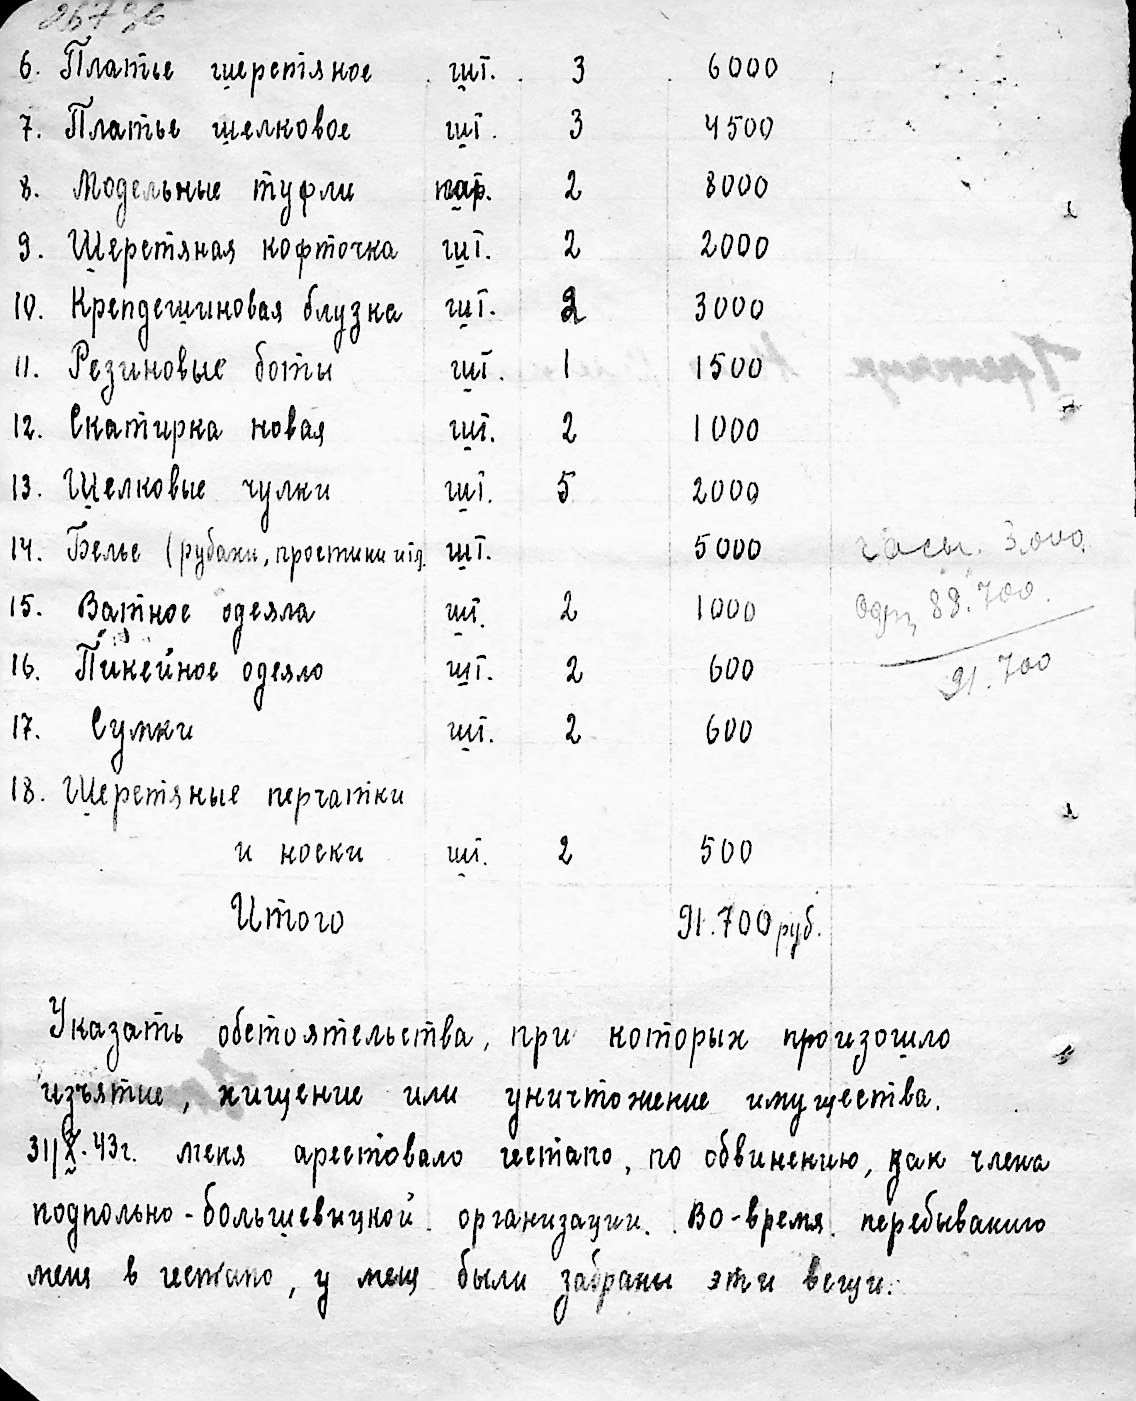 6. Платье шерстяное шт. 3 6000
7. Платье шелковое шт. 3 4500
8. Модельные туфли пар. 2 8000
9. Шерстяная кофточка шт. 2 2000
10. Крепдешиновая блузка шт. 2 3000
11. Резиновые боты шт. 1 1500
12. Скатирка новая шт. 2 1000
13. Шелковые чулки шт. 5 2000
14. Белье (рубахи, простини итд. шт. 5000
часы. 3.000.
15. Ватное одеяла шт. 2 1000
88.700.
16. Пикейное одеяло шт. 2 600
91.700
17. Сумки шт. 2 600
18. Шерстяные перчатки
и носки шт. 2 500
Итого 91.700 руб.
Указать обстоятельства, при которых произошло
изъятие, хищение или уничтожение имущества.
31/X.43г. меня арестовало гестапо, по обвинению, как члена
подпольно-большевицкой организации. Во-время перебыванию
меня в гестапо, у меня были забраны эти вещи.